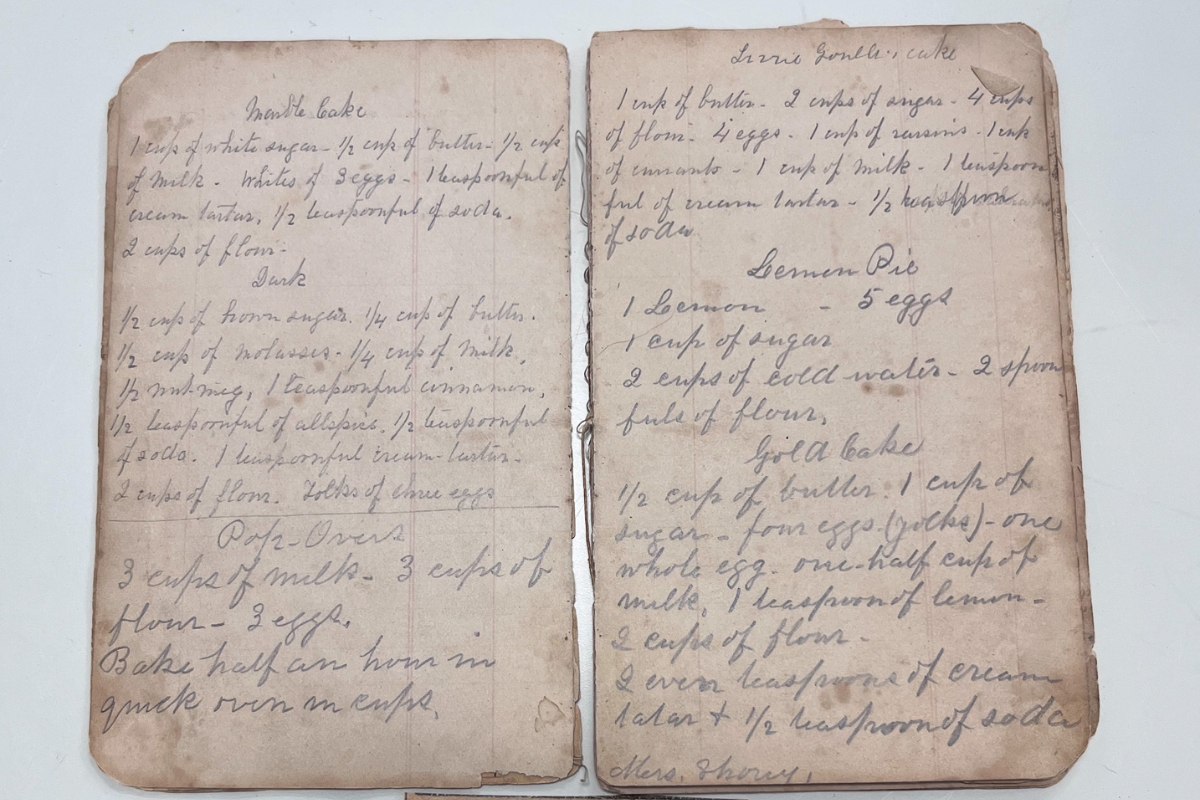 Marble Cake
1 cup of white sugar - 1/2 cup of butter - 1/2 cup
of milk - Whites of 3 eggs - 1 teaspoonful of
cream tartar, 1/2 teaspoonful of soda.
2 cups of flour -
Dark
1/2 cup of brown sugar. 1/4 cup of butter.
1/2 cup of molasses - 1/4 cup of milk,
1/2 nut-meg, 1 teaspoonful cinnamon,
1/2 teaspoonful of allspice, 1/2 teaspoonful
of soda. 1 teaspoonful cream-tartar -
2 cups of flour. Yolks of three eggs
Pop-Overs
3 cups of milk - 3 cups of
flour - 3 eggs.
Bake half an hour in
quick oven in cups.
Lizzie cake
1 cup of butter - 2 cups of sugar - 4 cups
of flour - 4 eggs - 1 cup of raisins - 1 cup
of currants - 1 cup of milk - 1 teaspoon
ful of cream tartar - 1/2 teaspoon
of soda
Lemon Pie
1 Lemon - 5 eggs
1 cup of sugar
2 cups of cold water - 2 spoon
fuls of flour.
Gold Cake
1/2 cup of butter. 1 cup of
sugar - four eggs (yolks) - one
whole egg. one-half cup of
milk, 1 teaspoon of lemon -
2 cups of flour -
2 even teaspoons of cream
tatar + 1/2 teaspoon of soda
Mrs.